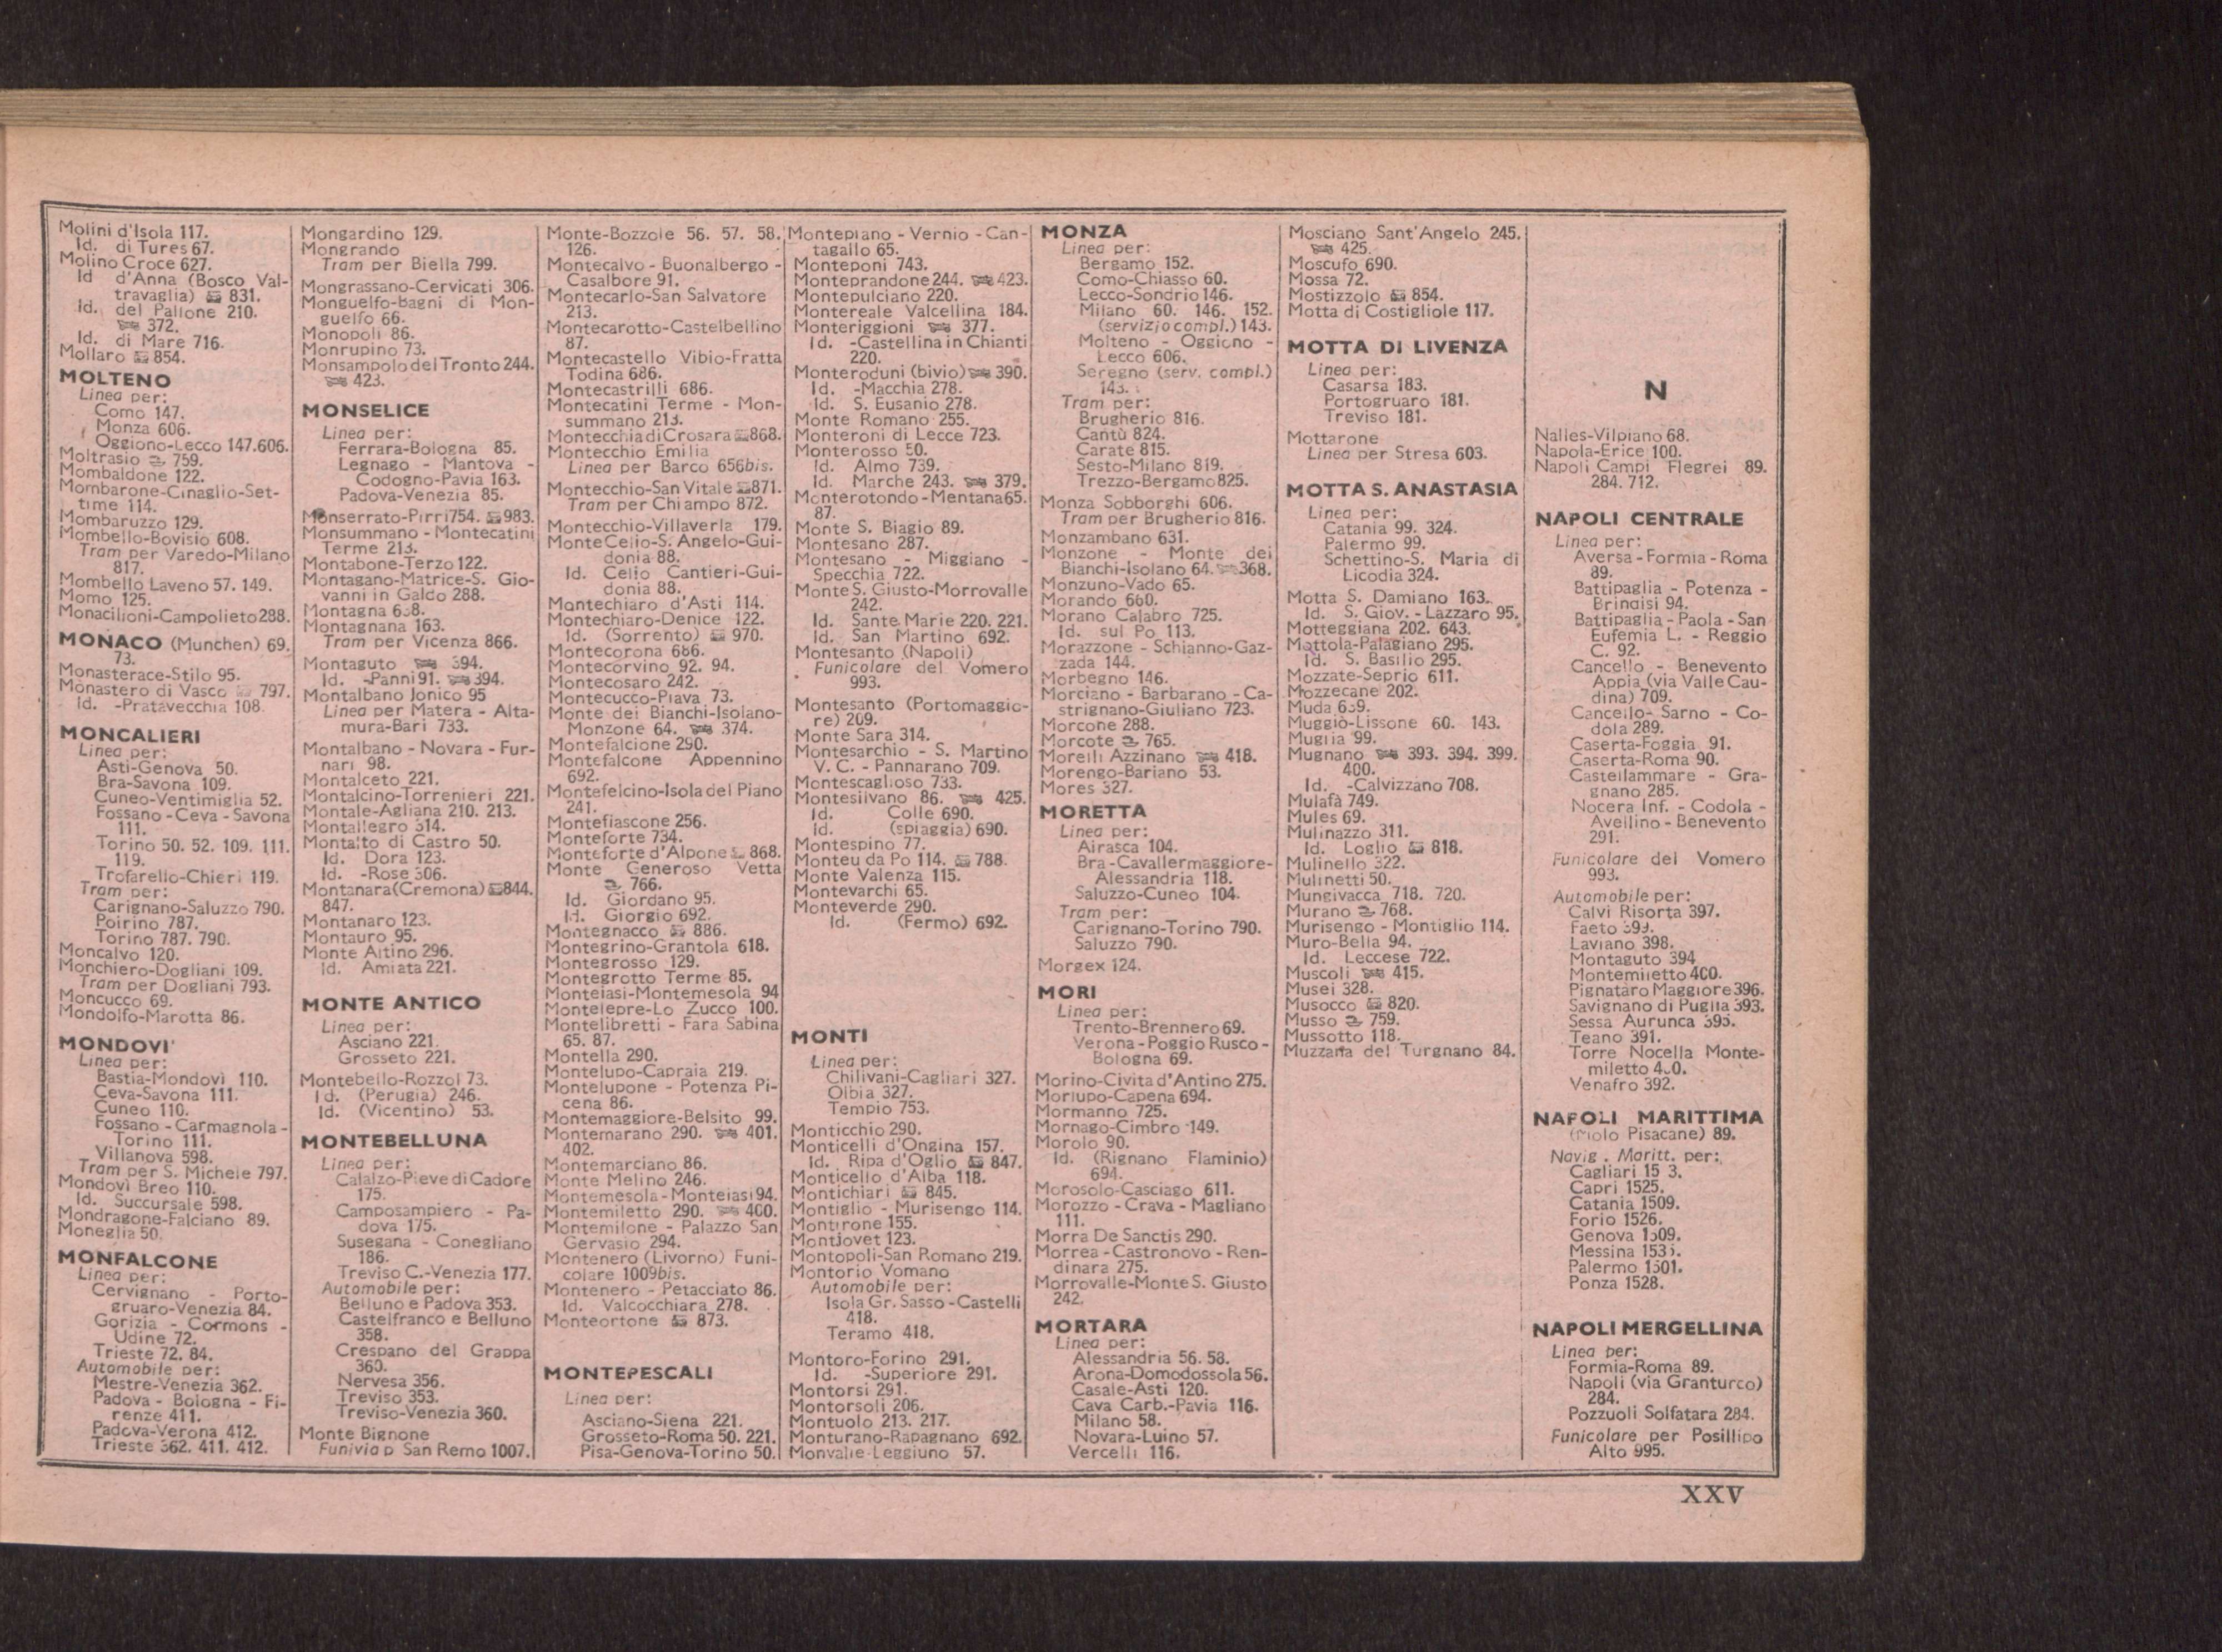 Molini d'Isola 117.
Id. di Tures 67.
Molino Croce 627.
Id d'Anna (Bosco Val-
travaglia) 831.
Id. del Pallone 210.
372.
Id. di Mare 716.
Mollaro 854.
MOLTENO
Linea per:
Como 147.
Monza 606.
Oggiono-Lecco 147.606.
Moltrasio 759.
Mombaldone 122.
Mombarone-Cinaglio-Set-
time 114.
Mombaruzzo 129.
Mombello-Bovisio 608.
Tram per Varedo-Milano
817.
Mombello Laveno 57. 149.
Momo 125.
Monacilioni-Campolieto 288.
MONACO (Munchen) 69.
73.
Monasterace-Stilo 95.
Monastero di Vasco 797.
Id. -Pratavecchia 108.
MONCALIERI
Linea per:
Asti-Genova 50.
Bra-Savona 109.
Cuneo-Ventimiglia 52.
Fossano - Ceva - Savona
111.
Torino 50. 52. 109. 111.
119.
Trofarello-Chieri 119.
Tram per:
Carignano-Saluzzo 790.
Poirino 787.
Torino 787. 790.
Moncalvo 120.
Monchiero-Dogliani 109.
Tram per Dogliani 793.
Moncucco 69.
Mondolfo-Marotta 86.
MONDOVI'
Linea per:
Bastia-Mondovì 110.
Ceva-Savona 111.
Cuneo 110.
Fossano - Carmagnola -
Torino 111.
Villanova 598.
Tram per S. Michele 797.
Mondovì Breo 110.
Id. Succursale 598.
Mondragone-Falciano 89.
Moneglia 50.
MONFALCONE
Linea per:
Cervignano - Porto-
gruaro-Venezia 84.
Gorizia - Cormons -
Udine 72.
Trieste 72. 84.
Automobile per:
Mestre-Venezia 362.
Padova - Bologna - Fi-
renze 411.
Padova-Verona 412.
Trieste 362. 411. 412.
Mongardino 129.
Mongrando
Tram per Biella 799.
Mongrassano-Cervicati 306.
Monguelfo-Bagni di Mon-
guelfo 66.
Monopoli 86.
Monrupino 73.
Monsampolo del Tronto 244.
423.
MONSELICE
Linea per:
Ferrara-Bologna 85.
Legnago - Mantova -
Codogno-Pavia 163.
Padova-Venezia 85.
Monserrato-Pirri 754. 983.
Monsummano - Montecatini
Terme 213.
Montabone-Terzo 122.
Montagano-Matrice-S. Gio-
vanni in Galdo 288.
Montagna 638.
Montagnana 163.
Tram per Vicenza 866.
Montaguto 394.
Id. -Panni 91. 394.
Montalbano Jonico 95
Linea per Matera - Alta-
mura-Bari 733.
Montalbano - Novara - Fur-
nari 98.
Montalceto 221.
Montalcino-Torrenieri 221.
Montale-Agliana 210. 213.
Montallegro 314.
Montalto di Castro 50.
Id. Dora 123.
Id. -Rose 306.
Montanara (Cremona) 844.
847.
Montanaro 123.
Montauro 95.
Monte Altino 296.
Id. Amiata 221.
MONTE ANTICO
Linea per:
Asciano 221.
Grosseto 221.
Montebello-Rozzol 73.
Id. (Perugia) 246.
Id. (Vicentino) 53.
MONTEBELLUNA
Linea per:
Calalzo-Pieve di Cadore
175.
Camposampiero - Pa-
dova 175.
Susegana - Conegliano
186.
Treviso C.-Venezia 177.
Automobile per:
Belluno e Padova 353.
Castelfranco e Belluno
358.
Crespano del Grappa
360.
Nervesa 356.
Treviso 353.
Treviso-Venezia 360.
Monte Bignone
Funivia p San Remo 1007.
Monte-Bozzole 56. 57. 58.
126.
Montecalvo - Buonalbergo -
Casalbore 91.
Montecarlo-San Salvatore
213.
Montecarotto-Castelbellino
87.
Montecastello Vibio-Fratta
Todina 686.
Montecastrilli 686.
Montecatini Terme - Mon-
summano 213.
Montecchia di Crosara 868.
Montecchio Emilia
Linea per Barco 656bis.
Montecchio-San Vitale 871.
Tram per Chiampo 872.
Montecchio-Villaverla 179.
Monte Celio-S. Angelo-Gui-
donia 88.
Id. Celio Cantieri-Gui-
donia 88.
Montechiaro d'Asti 114.
Montechiaro-Denice 122.
Id. (Sorrento) 970.
Montecorona 686.
Montecorvino 92. 94.
Montecosaro 242.
Montecucco-Piava 73.
Monte dei Bianchi-Isolano-
Monzone 64. 374.
Montefalcione 290.
Montefalcone Appennino
692.
Montefelcino-Isola del Piano
241.
Montefiascone 256.
Monteforte 734.
Monteforte d'Alpone 868.
Monte Generoso Vetta
766.
Id. Giordano 95.
Id. Giorgio 692.
Montegnacco 886.
Montegrino-Grantola 618.
Montegrosso 129.
Montegrotto Terme 85.
Monteiasi-Montemesola 94
Montelepre-Lo Zucco 100.
Montelibretti - Fara Sabina
65. 87.
Montella 290.
Montelupo-Capraia 219.
Montelupone - Potenza Pi-
cena 86.
Montemaggiore-Belsito 99.
Montemarano 290. 401.
402.
Montemarciano 86.
Monte Melino 246.
Montemesola-Monteiasi 94.
Montemiletto 290. 400.
Montemilone - Palazzo San
Gervasio 294.
Montenero (Livorno) Funi-
colare 1009bis.
Montenero - Petacciato 86.
Id. Valcocchiara 278.
Monteortone 873.
MONTEPESCALI
Linea per:
Asciano-Siena 221.
Grosseto-Roma 50. 221.
Pisa-Genova-Torino 50.
Montepiano - Vernio - Can-
tagallo 65.
Monteponi 743.
Monteprandone 244. 423.
Montepulciano 220.
Montereale Valcellina 184.
Monteriggioni 377.
Id. -Castellina in Chianti
220.
Monteroduni (bivio) 390.
Id. -Macchia 278.
Id. S. Eusanio 278.
Monte Romano 255.
Monteroni di Lecce 723.
Monterosso 50.
Id. Almo 739.
Id. Marche 243. 379.
Monterotondo-Mentana 65.
87.
Monte S. Biagio 89.
Montesano 287.
Montesano - Miggiano -
Specchia 722.
Monte S. Giusto-Morrovalle
242.
Id. Sante Marie 220. 221.
Id. San Martino 692.
Montesanto (Napoli)
Funicolare del Vomero
993.
Montesanto (Portomaggio-
re) 209.
Monte Sara 314.
Montesarchio - S. Martino
V. C. - Pannarano 709.
Montescaglioso 733.
Montesilvano 86. 425.
Id. Colle 690.
Id. (spiaggia) 690.
Montespino 77.
Monteu da Po 114. 788.
Monte Valenza 115.
Montevarchi 65.
Monteverde 290.
Id. (Fermo) 692.
MONTI
Linea per:
Chilivani-Cagliari 327.
Olbia 327.
Tempio 753.
Monticchio 290.
Monticelli d'Ongina 157.
Id. Ripa d'Oglio 847.
Monticello d'Alba 118.
Montichiari 845.
Montiglio - Murisengo 114.
Montirone 155.
Montjovet 123.
Montopoli-San Romano 219.
Montorio Vomano
Automobile per:
Isola Gr. Sasso-Castelli
418.
Teramo 418.
Montoro-Forino 291.
Id. -Superiore 291.
Montorsi 291.
Montorsoli 206.
Montuolo 213. 217.
Monturano-Rapagnano 692.
Monvalle-Leggiuno 57.
MONZA
Linea per:
Bergamo 152.
Como-Chiasso 60.
Lecco-Sondrio 146.
Milano 60. 146. 152.
(servizio compl.) 143.
Molteno - Oggiono -
Lecco 606.
Seregno (serv. compl.)
143.
Tram per:
Brugherio 816.
Cantù 824.
Carate 815.
Sesto-Milano 819.
Trezzo-Bergamo 825.
Monza Sobborghi 606.
Tram per Brugherio 816.
Monzambano 631.
Monzone - Monte dei
Bianchi-Isolano 64. 368.
Monzuno-Vado 65.
Morando 660.
Morano Calabro 725.
Id. sul Po 113.
Morazzone - Schianno-Gaz-
zada 144.
Morbegno 146.
Morciano - Barbarano - Ca-
strignano-Giuliano 723.
Morcone 288.
Morcote 765.
Morelli Azzinano 418.
Morengo-Bariano 53.
Mores 327.
MORETTA
Linea per:
Airasca 104.
Bra-Cavallermaggiore-
Alessandria 118.
Saluzzo-Cuneo 104.
Tram per:
Carignano-Torino 790.
Saluzzo 790.
Morgex 124.
MORI
Linea per:
Trento-Brennero 69.
Verona-Poggio Rusco-
Bologna 69.
Morino-Civita d'Antino 275.
Morlupo-Capena 694.
Mormanno 725.
Mornago-Cimbro 149.
Morolo 90.
Id. (Rignano Flaminio)
694.
Morosolo-Casciago 611.
Morozzo - Crava - Magliano
111.
Morra De Sanctis 290.
Morrea-Castronovo-Ren-
dinara 275.
Morrovalle-Monte S. Giusto
242.
MORTARA
Linea per:
Alessandria 56. 58.
Arona-Domodossola 56.
Casale-Asti 120.
Cava Carb.-Pavia 116.
Milano 58.
Novara-Luino 57.
Vercelli 116.
Mosciano Sant'Angelo 245.
425.
Moscufo 690.
Mossa 72.
Mostizzolo 854.
Motta di Costigliole 117.
MOTTA DI LIVENZA
Linea per:
Casarsa 183.
Portogruaro 181.
Treviso 181.
Mottarone
Linea per Stresa 603.
MOTTA S. ANASTASIA
Linea per:
Catania 99. 324.
Palermo 99.
Schettino-S. Maria di
Licodia 324.
Motta S. Damiano 163.
Id. S. Giov. - Lazzaro 95.
Motteggiana 202. 643.
Mottola-Palagiano 295.
Id. S. Basilio 295.
Mozzate-Seprio 611.
Mozzecane 202.
Muda 639.
Muggiò-Lissone 60. 143.
Muglia 99.
Mugnano 393. 394. 399.
400.
Id. -Calvizzano 708.
Mulafà 749.
Mules 69.
Mulinazzo 311.
Id. Loglio 818.
Mulinello 322.
Mulinetti 50.
Mungivacca 718. 720.
Murano 768.
Murisengo - Montiglio 114.
Muro-Bella 94.
Id. Leccese 722.
Muscoli 415.
Musei 328.
Musocco 820.
Musso 759.
Mussotto 118.
Muzzana del Turgnano 84.
N
Nalles-Vilpiano 68.
Napola-Erice 100.
Napoli Campi Flegrei 89.
284. 712.
NAPOLI CENTRALE
Linea per:
Aversa-Formia-Roma
89.
Battipaglia - Potenza -
Brindisi 94.
Battipaglia - Paola - San
Eufemia L. - Reggio
C. 92.
Cancello - Benevento
Appia (via Valle Cau-
dina) 709.
Cancello- Sarno - Co-
dola 289.
Caserta-Foggia 91.
Caserta-Roma 90.
Castellammare - Gra-
gnano 285.
Nocera Inf. - Codola -
Avellino - Benevento
291.
Funicolare del Vomero
993.
Automobile per:
Calvi Risorta 397.
Faeto 399.
Laviano 398.
Montaguto 394
Montemiletto 400.
Pignataro Maggiore 396.
Savignano di Puglia 393.
Sessa Aurunca 395.
Teano 391.
Torre Nocella Monte-
miletto 400.
Venafro 392.
NAPOLI MARITTIMA
(Molo Pisacane) 89.
Navig. Maritt. per:
Cagliari 15 3.
Capri 1525.
Catania 1509.
Forio 1526.
Genova 1509.
Messina 1533.
Palermo 1501.
Ponza 1528.
NAPOLI MERGELLINA
Linea per:
Formia-Roma 89.
Napoli (via Granturco)
284.
Pozzuoli Solfatara 284.
Funicolare per Posillipo
Alto 995.
XXV